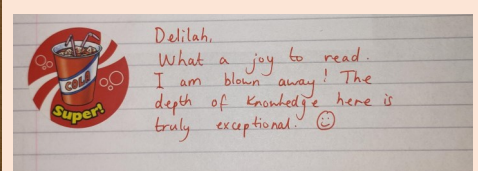 COLA
Super!
Delilah,
What a joy to read.
I am blown away! The
depth of knowledge here is
truly exceptional. ☺